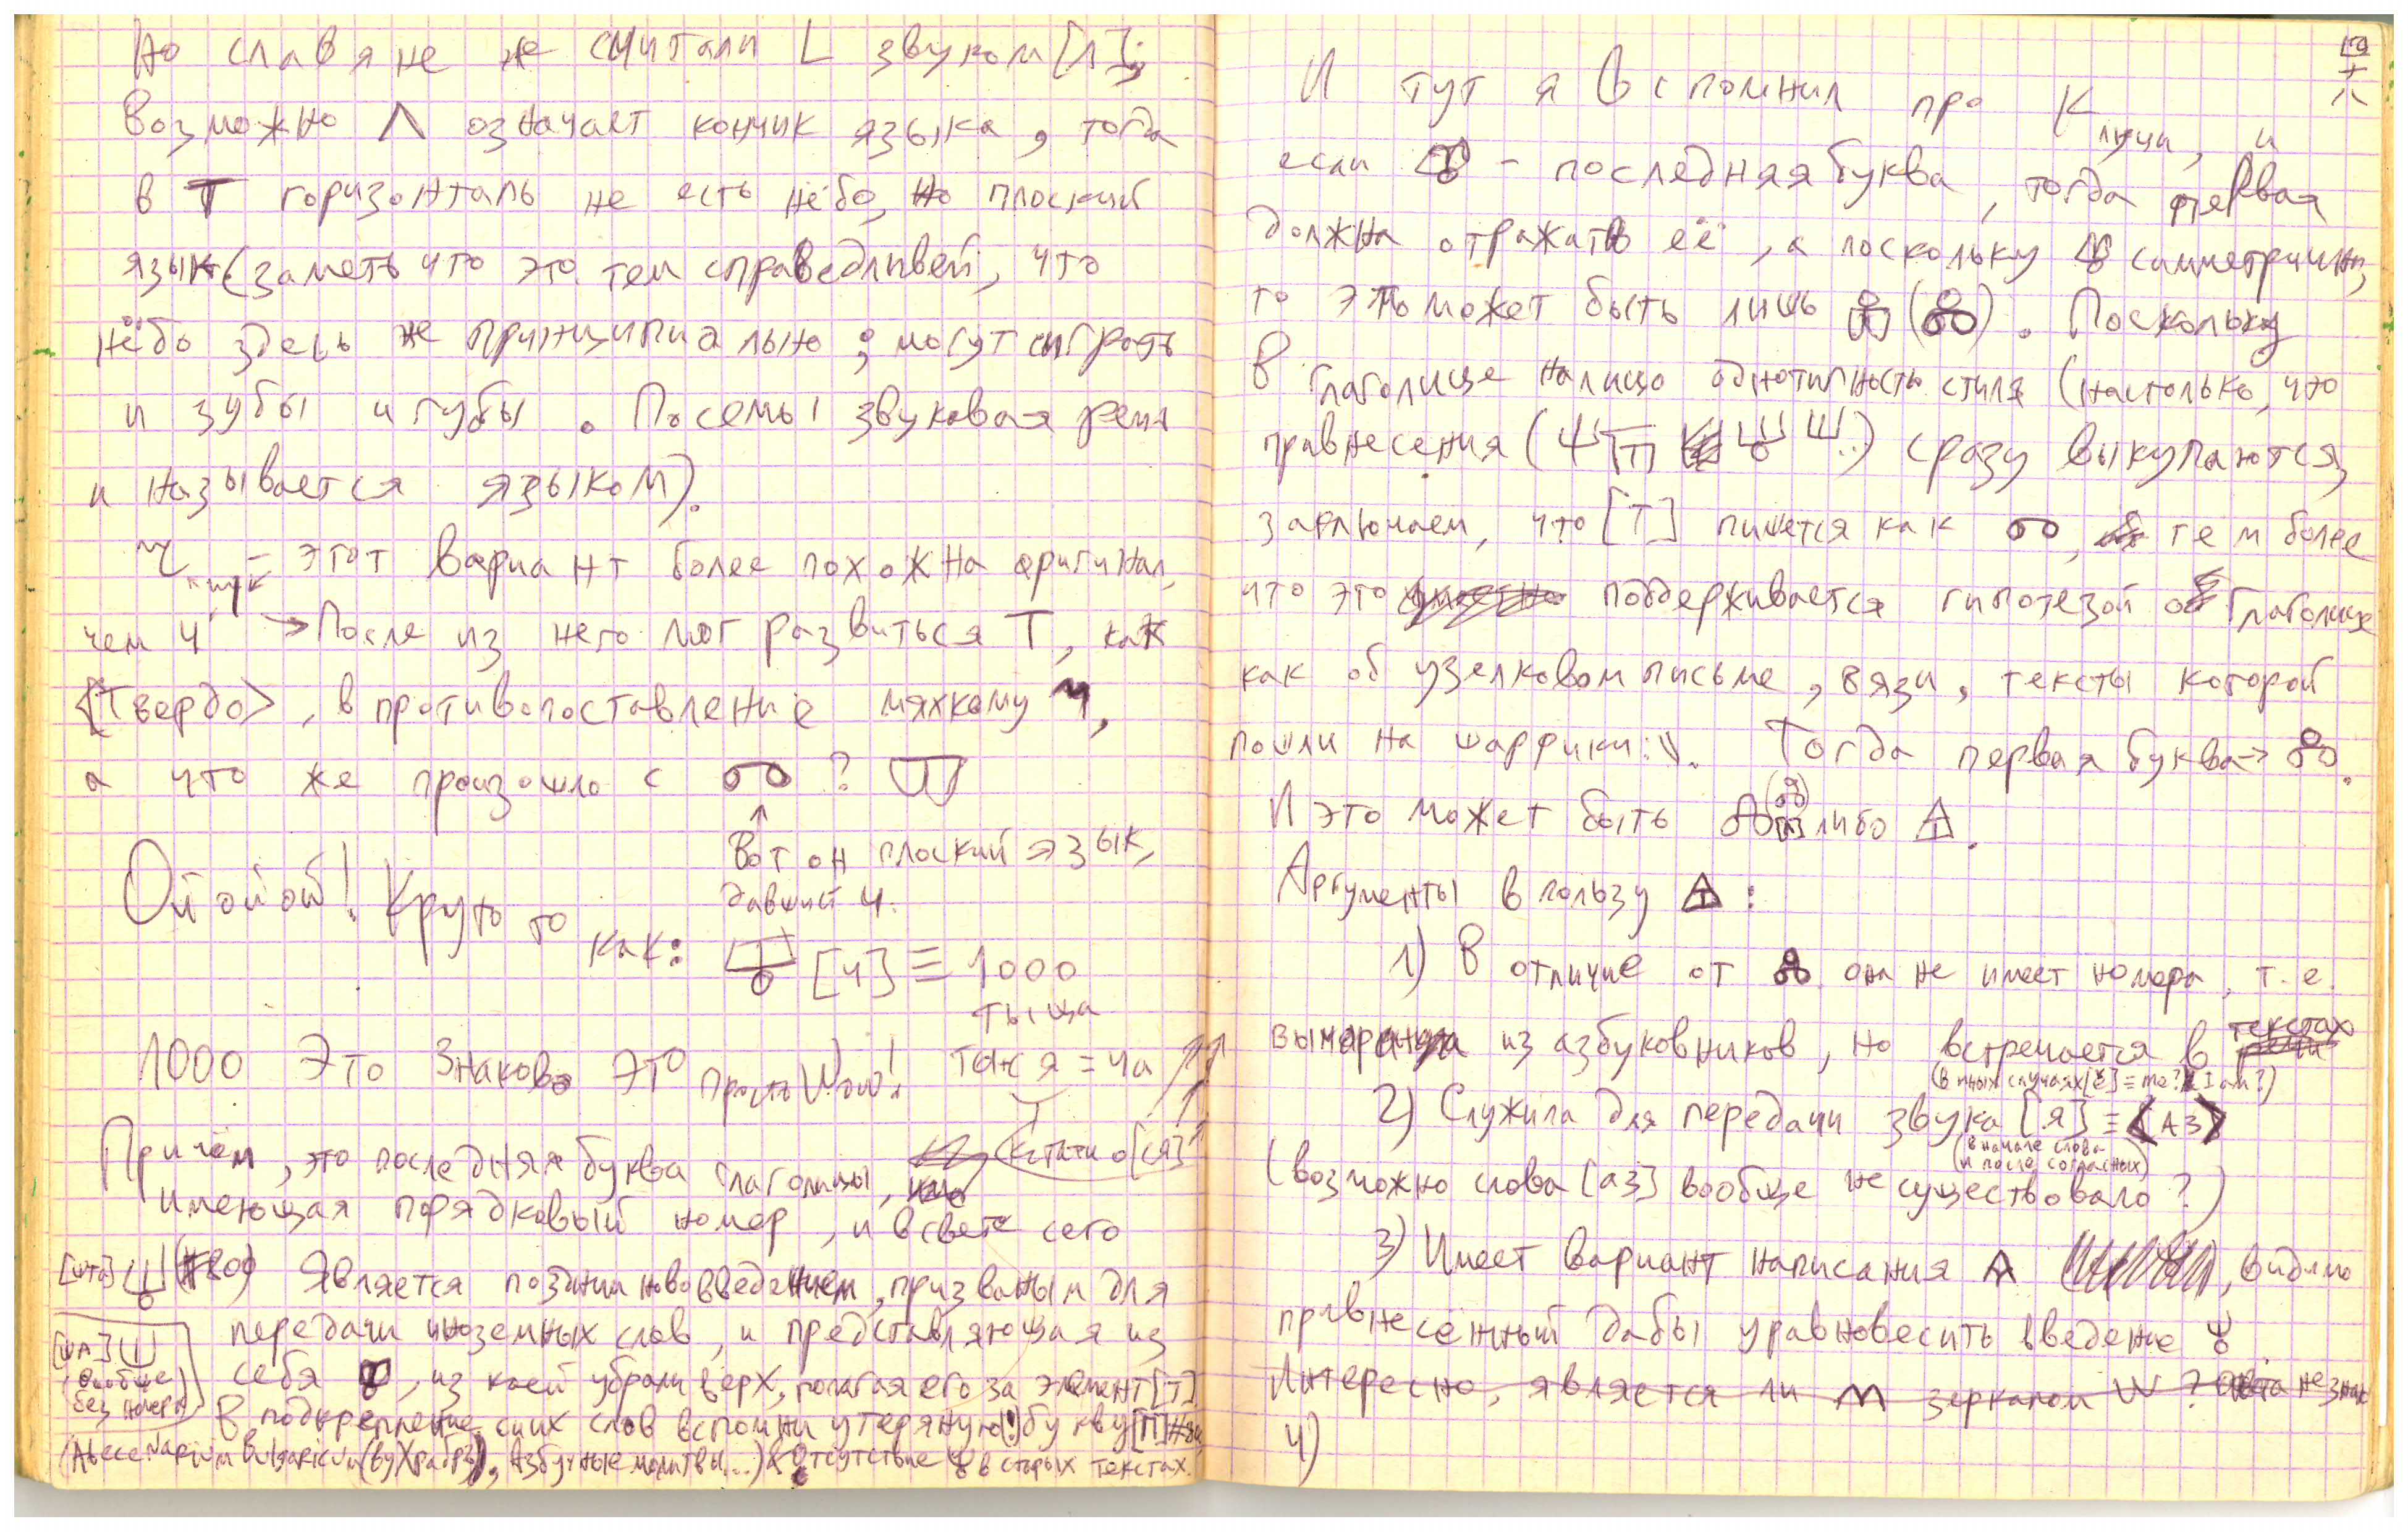 Но славяне не считали L звуком [Л];
Возможно Λ означает кончик языка, тогда
в Т горизонталь не есть нёбо, но плоский
язык (заметь что это тем справедливей, что
нёбо здесь не принципиально; могут сыграть
и зубы и губы. Посемы звуковая речь
и называется языком).
Ч - этот вариант более похож на оригинал,
чем Ч → После из него мог развиться Т, как
<Твердо>, в противопоставление мяхкому Ч,
а что же произошло с ⰕⰕ?
↑
Вот он плоский язык,
давший ч.
Ойойой! Круто то как: [ч] ≡ 1000
тыща
1000 Это Знаково Это просто Wow! тон я = ча ↑↑
Причём, это последняя буква глаголицы, (кстати о [ся]
имеющая порядковый номер, и в свете сего
[шта] Ⱋ (#800) Является поздним нововведением, призваным для
передачи иноземных слов, и представляющая из
[ша] Ш (вообще без номера)
себя , из коей убрали верх, полагая его за элемент [т]
В подкрепление сих слов вспомни утеряную! букву [П] #800
(Abecenarium Bulgaricum (by Храбръ), Азбучные молитвы...) & Отсутствие Ⱋ в старых текстах.
И тут я Вспомнил про Ключи, и
если - последняя буква, тогда первая
должна отражать её, а поскольку симметрична,
то это может быть лишь ( ). Поскольку
В Глаголице налицо однотипность стиля (настолько, что
правнесения (Ψ Ⱋ Ш..) сразу выкупаются,
заключаем, что [Т] пишется как Ⱅ, тем более
что это поддерживается гипотезой о Глаголице
как об узелковом письме, вязи, тексты которой
пошли на шарфики:\. Тогда первая буква → Ⰴ.
И это может быть либо .
Аргументы в пользу :
1) В отличие от она не имеет номера, т.е.
вымарана из азбуковников, но встречается в текстах
(в иных случаях [ё] ≡ me? & I am?)
2) Служила для передачи звука [я] ≡ <АЗ>
(в начале слова
и после согласных)
(возможно слова [аз] вообще не существовало?)
3) Имеет вариант написания А , видимо
привнесённый дабы уравновесить введение Ⱋ
Интересно, является ли М зеркалом W ?
4)